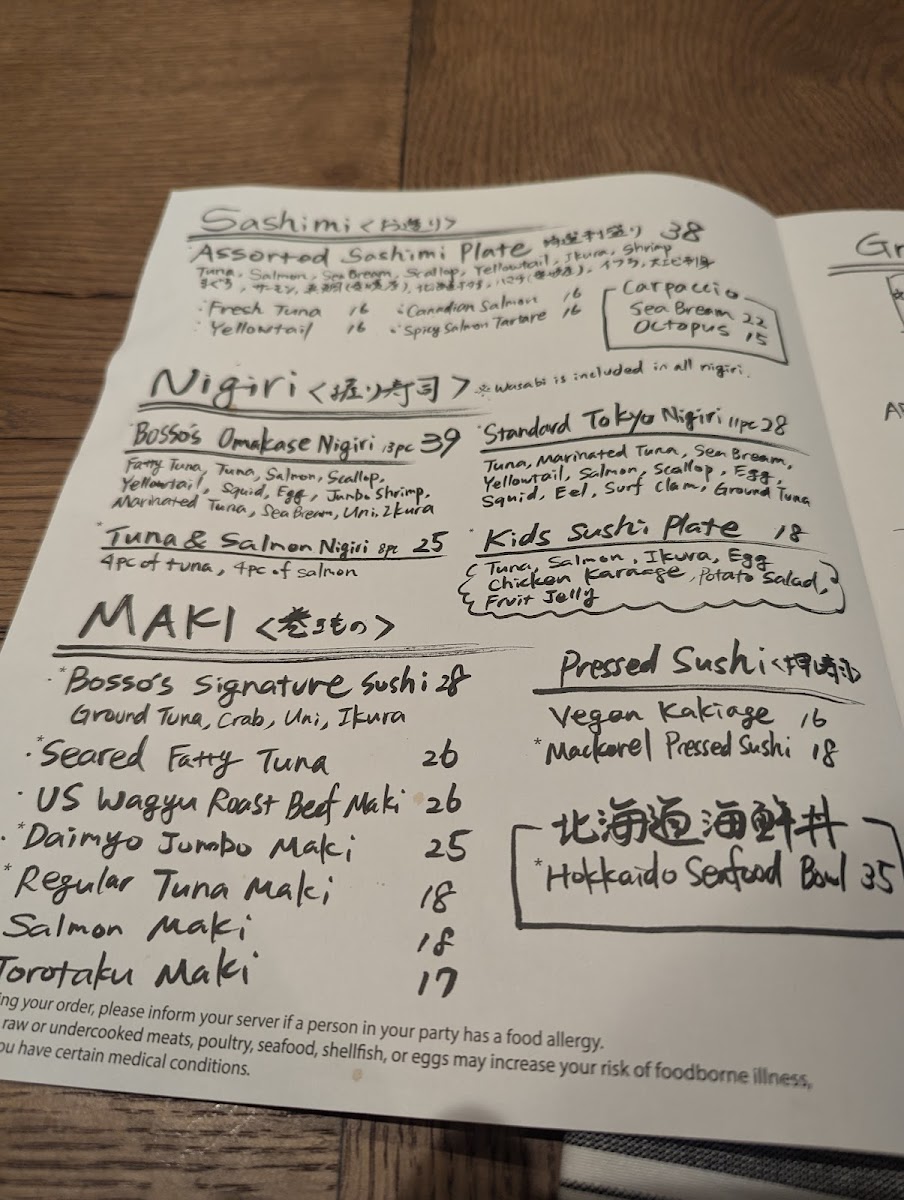 Sashimi <お造り>
Assorted Sashimi Plate 特選刺盛り 38
Tuna, Salmon, Sea Bream, Scallop, Yellowtail, Ikura, Shrimp
まぐろ, サーモン, 真鯛
・Fresh Tuna 16
・Canadian Salmon 16
・Yellowtail 16
・Spicy Salmon Tartare 16
Carpaccio
Sea Bream 22
Octopus 15
Nigiri <握り寿司> ※Wasabi is included in all nigiri.
*Bosso's Omakase Nigiri 13pc 39
Fatty Tuna, Tuna, Salmon, Scallop,
Yellowtail, Squid, Egg, Jumbo Shrimp,
Marinated Tuna, Sea Bream, Uni, Ikura
*Tuna & Salmon Nigiri 8pc 25
4pc of tuna, 4pc of salmon
*Standard Tokyo Nigiri 11pc 28
Tuna, Marinated Tuna, Sea Bream,
Yellowtail, Salmon, Scallop, Egg,
Squid, Eel, Surf Clam, Ground Tuna
*Kids Sushi Plate 18
Tuna, Salmon, Ikura, Egg
Chicken Karaage, Potato Salad,
Fruit Jelly
MAKI <巻きもの>
・*Bosso's Signature Sushi 28
Ground Tuna, Crab, Uni, Ikura
・*Seared Fatty Tuna 26
・US Wagyu Roast Beef Maki 26
・*Daimyo Jumbo Maki 25
*Regular Tuna Maki 18
Salmon Maki 18
Torotaku Maki 17
Pressed Sushi
Vegan Kakiage 16
*Mackerel Pressed Sushi 18
北海道海鮮丼
*Hokkaido Seafood Bowl 35
ing your order, please inform your server if a person in your party has a food allergy.
raw or undercooked meats, poultry, seafood, shellfish, or eggs may increase your risk of foodborne illness,
ou have certain medical conditions.
Gr